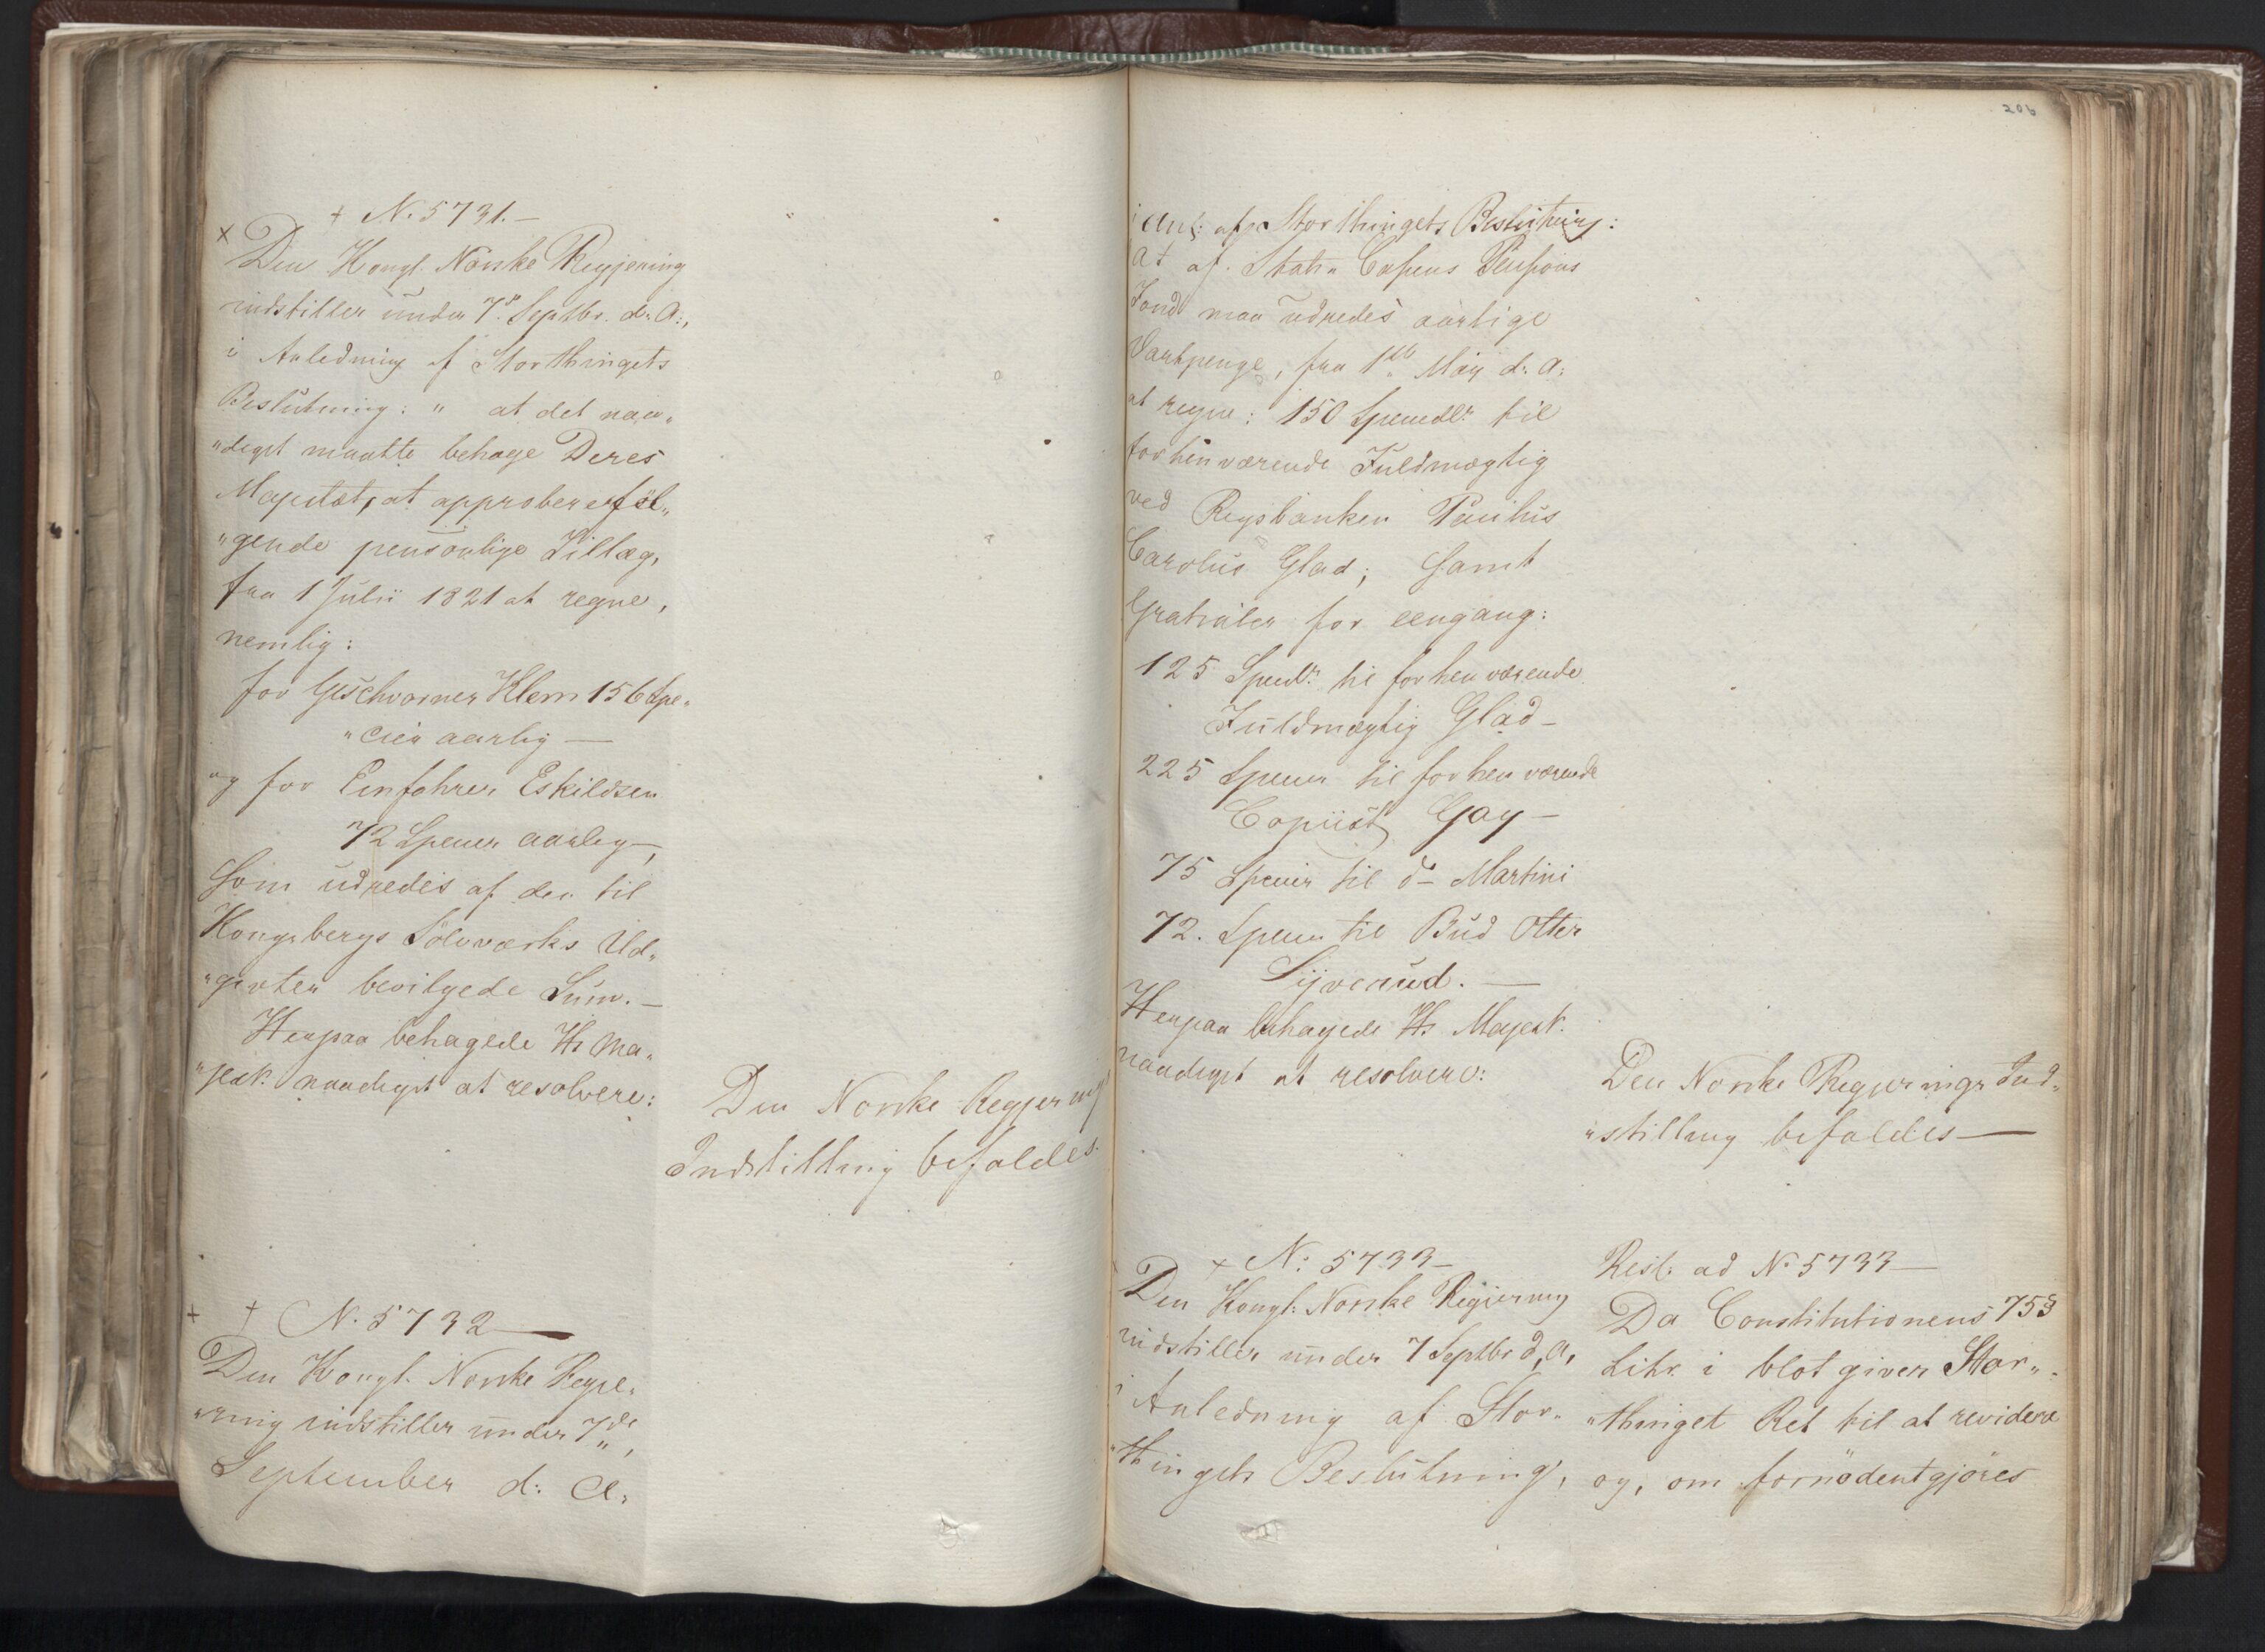 † N. 5731.—
× Den Kongl. Norske Regjering
indstiller under 7de Septbr. d: A:,
i Anledning af Storthingets
Beslutning: " at det naa„
"digst maatte behage Deres
Majestæt, at approbere föl„
"gende personlige Tillæg,
fra 1 Julii 1821 at regne,
nemlig:
for Geschvorner Klem 156 Spe„
"cier aarlig —
og for Einfahrer Eskildsen
72 Specier aarlig —,
som udredes af den til
Kongsbergs Sölvværks Ud„
"givter bevilgede Sum. —
Herpaa behagede Hs Ma„
"jest. naadigst at resolvere:
Den Norske Regjerings
Indstilling bifaldes.
+ † N. 5732 —
Den Kongl. Norske Regje„
"ring indstiller under 7de,
September d: A:
206
i Anl: af Storthingets Beslutning:
at af Stats Cassens Pensions
Fond maa udredes aarlige
Vartpenge, fra 1ste May d: A:
at regne: 150 Speciedlr til
forhenværende Fuldmægtig
ved Rigsbanken Paulus
Carolus Glad; samt
Gratialer for eengang:
125 Specdlr til forhenværende
Fuldmægtig Glad —
225 Specier til forhenværende
Copiist Gay —
75 Specier til do Martini
72. Specier til Bud Otter
Syverud. —
Herpaa behagede Hs Majest.
naadigst at resolvere:
Den Norske Regjerings Ind„
"stilling bifaldes —
+ N: 5733 —
Den Kongl: Norske Regjering
indstiller under 7 Septbr d, A,
i Anledning af Stor„
"thingets Beslutning,
Resl: ad N. 5733 —
Da Constitutionens 75 §
Litr. i blot giver Stor„
"thinget Ret til at revidere
og, om fornödent gjöres